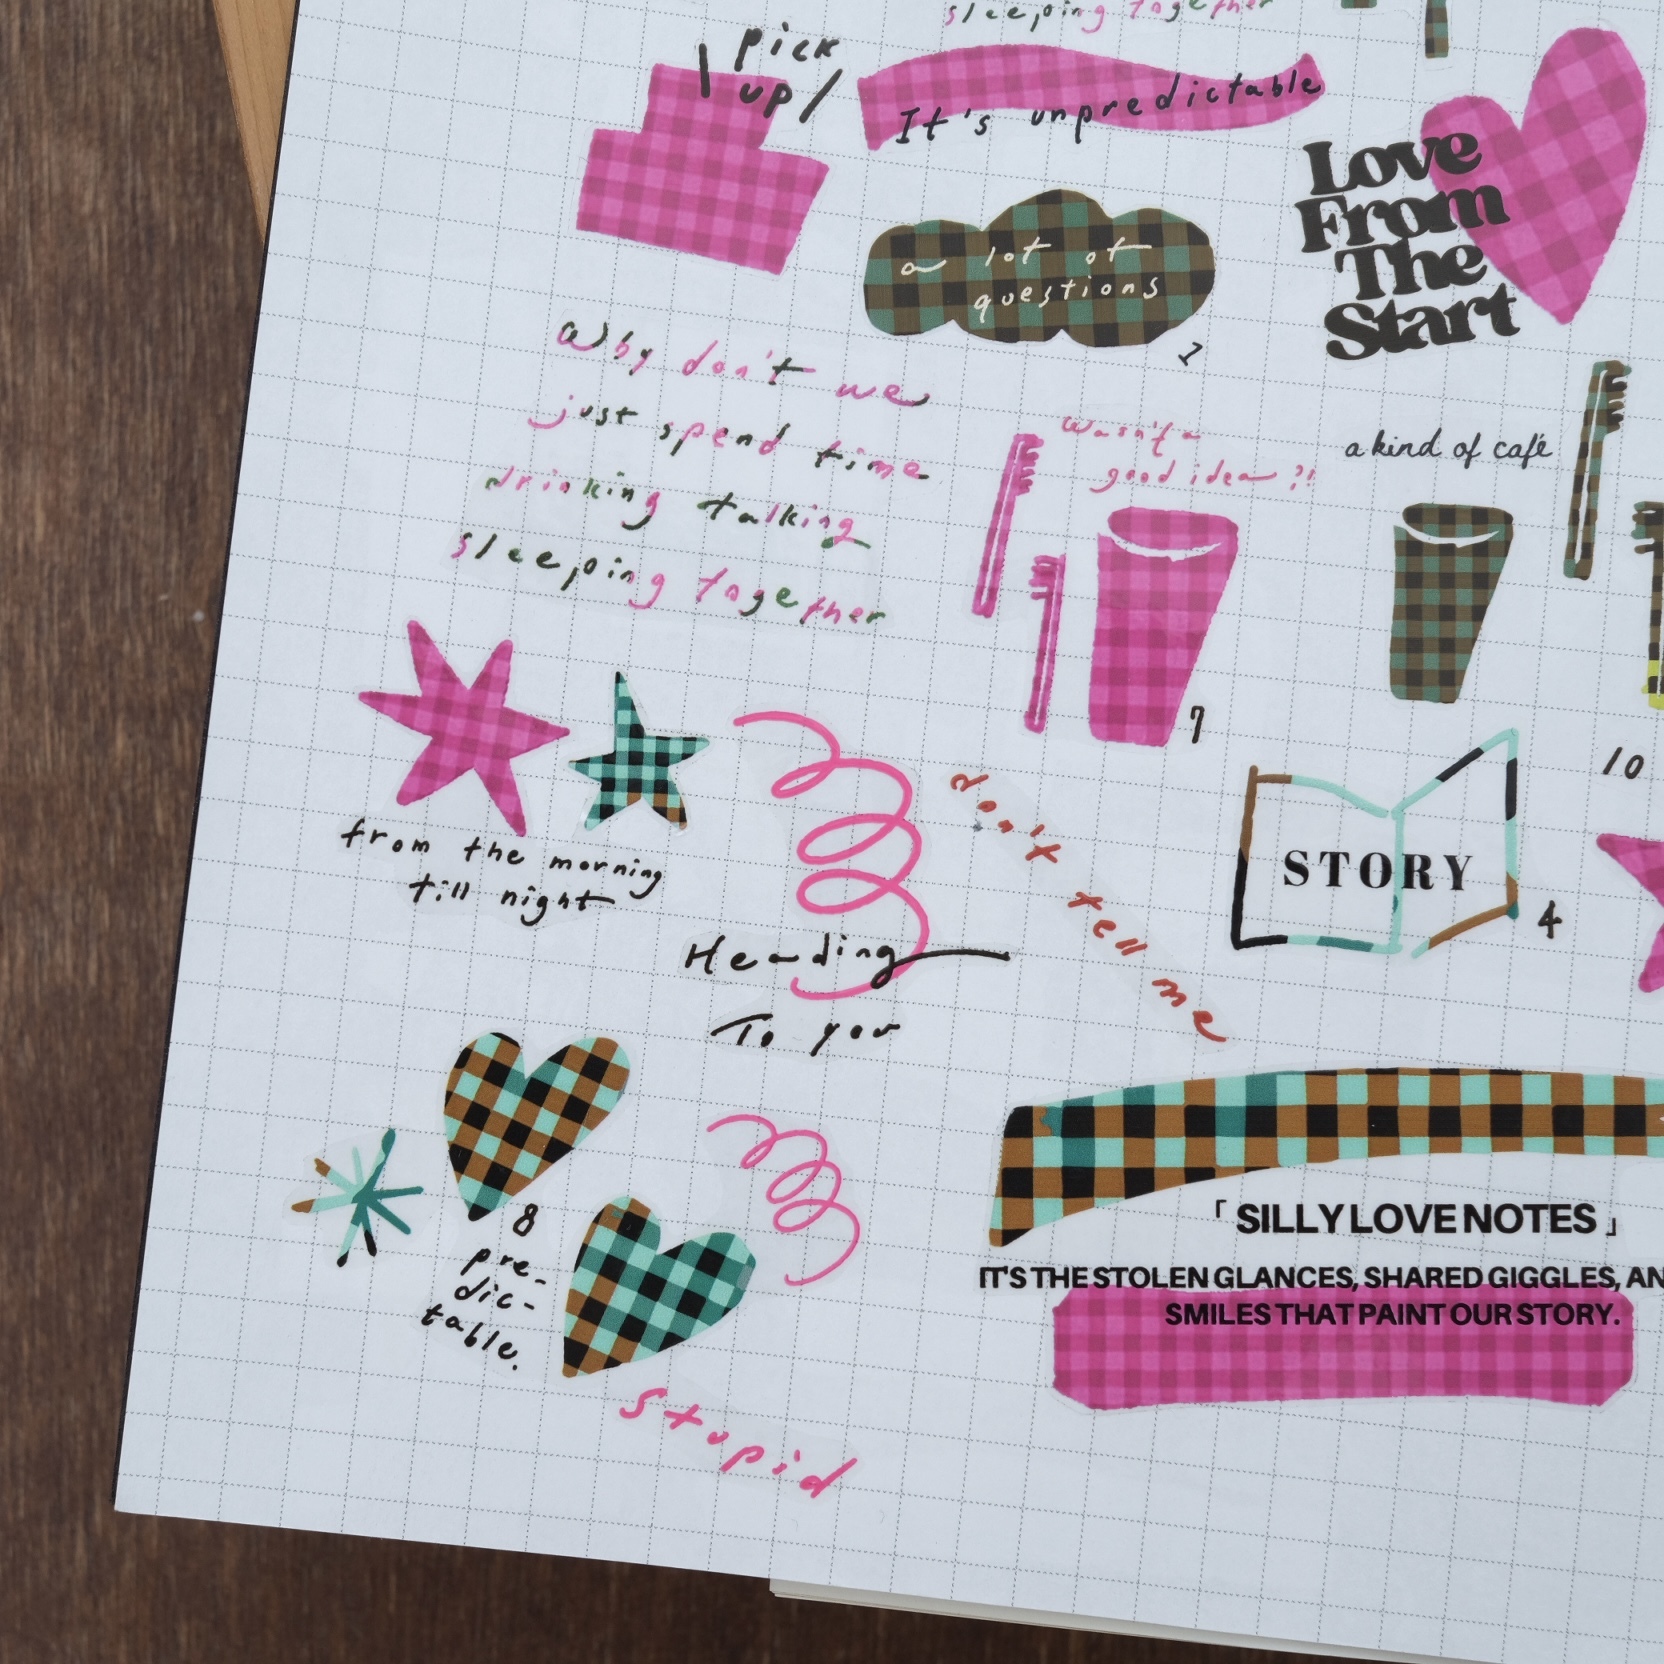 sleeping together
pick
up
It's unpredictable
Love
From
The
Start
a lot of
questions
1
Why don't we
just spend time
drinking talking
sleeping together
Wasn't a
good idea ?!
a kind of café
7
10
from the morning
till night
don't tell me
STORY
4
Heading
To you
8
pre-
dic-
table.
stupid
「 SILLY LOVE NOTES 」
IT'S THE STOLEN GLANCES, SHARED GIGGLES, AN
SMILES THAT PAINT OUR STORY.